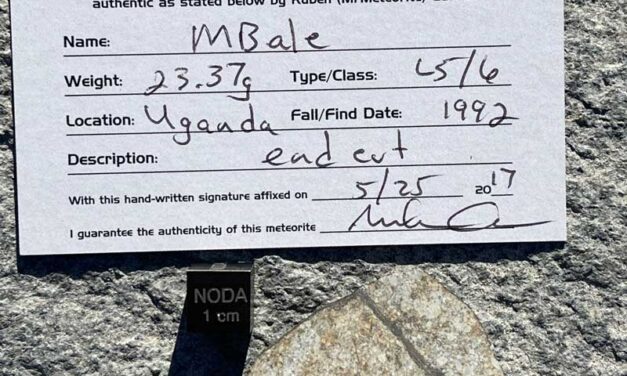 authentic as stated below by Ruben (Mr.Meteorite)
Name: MBale
Weight: 23.37g Type/Class: L5/6
Location: Uganda Fall/Find Date: 1992
Description: end cut
With this hand-written signature affixed on 5/25 2017
I guarantee the authenticity of this meteorite
NODA
1 cm